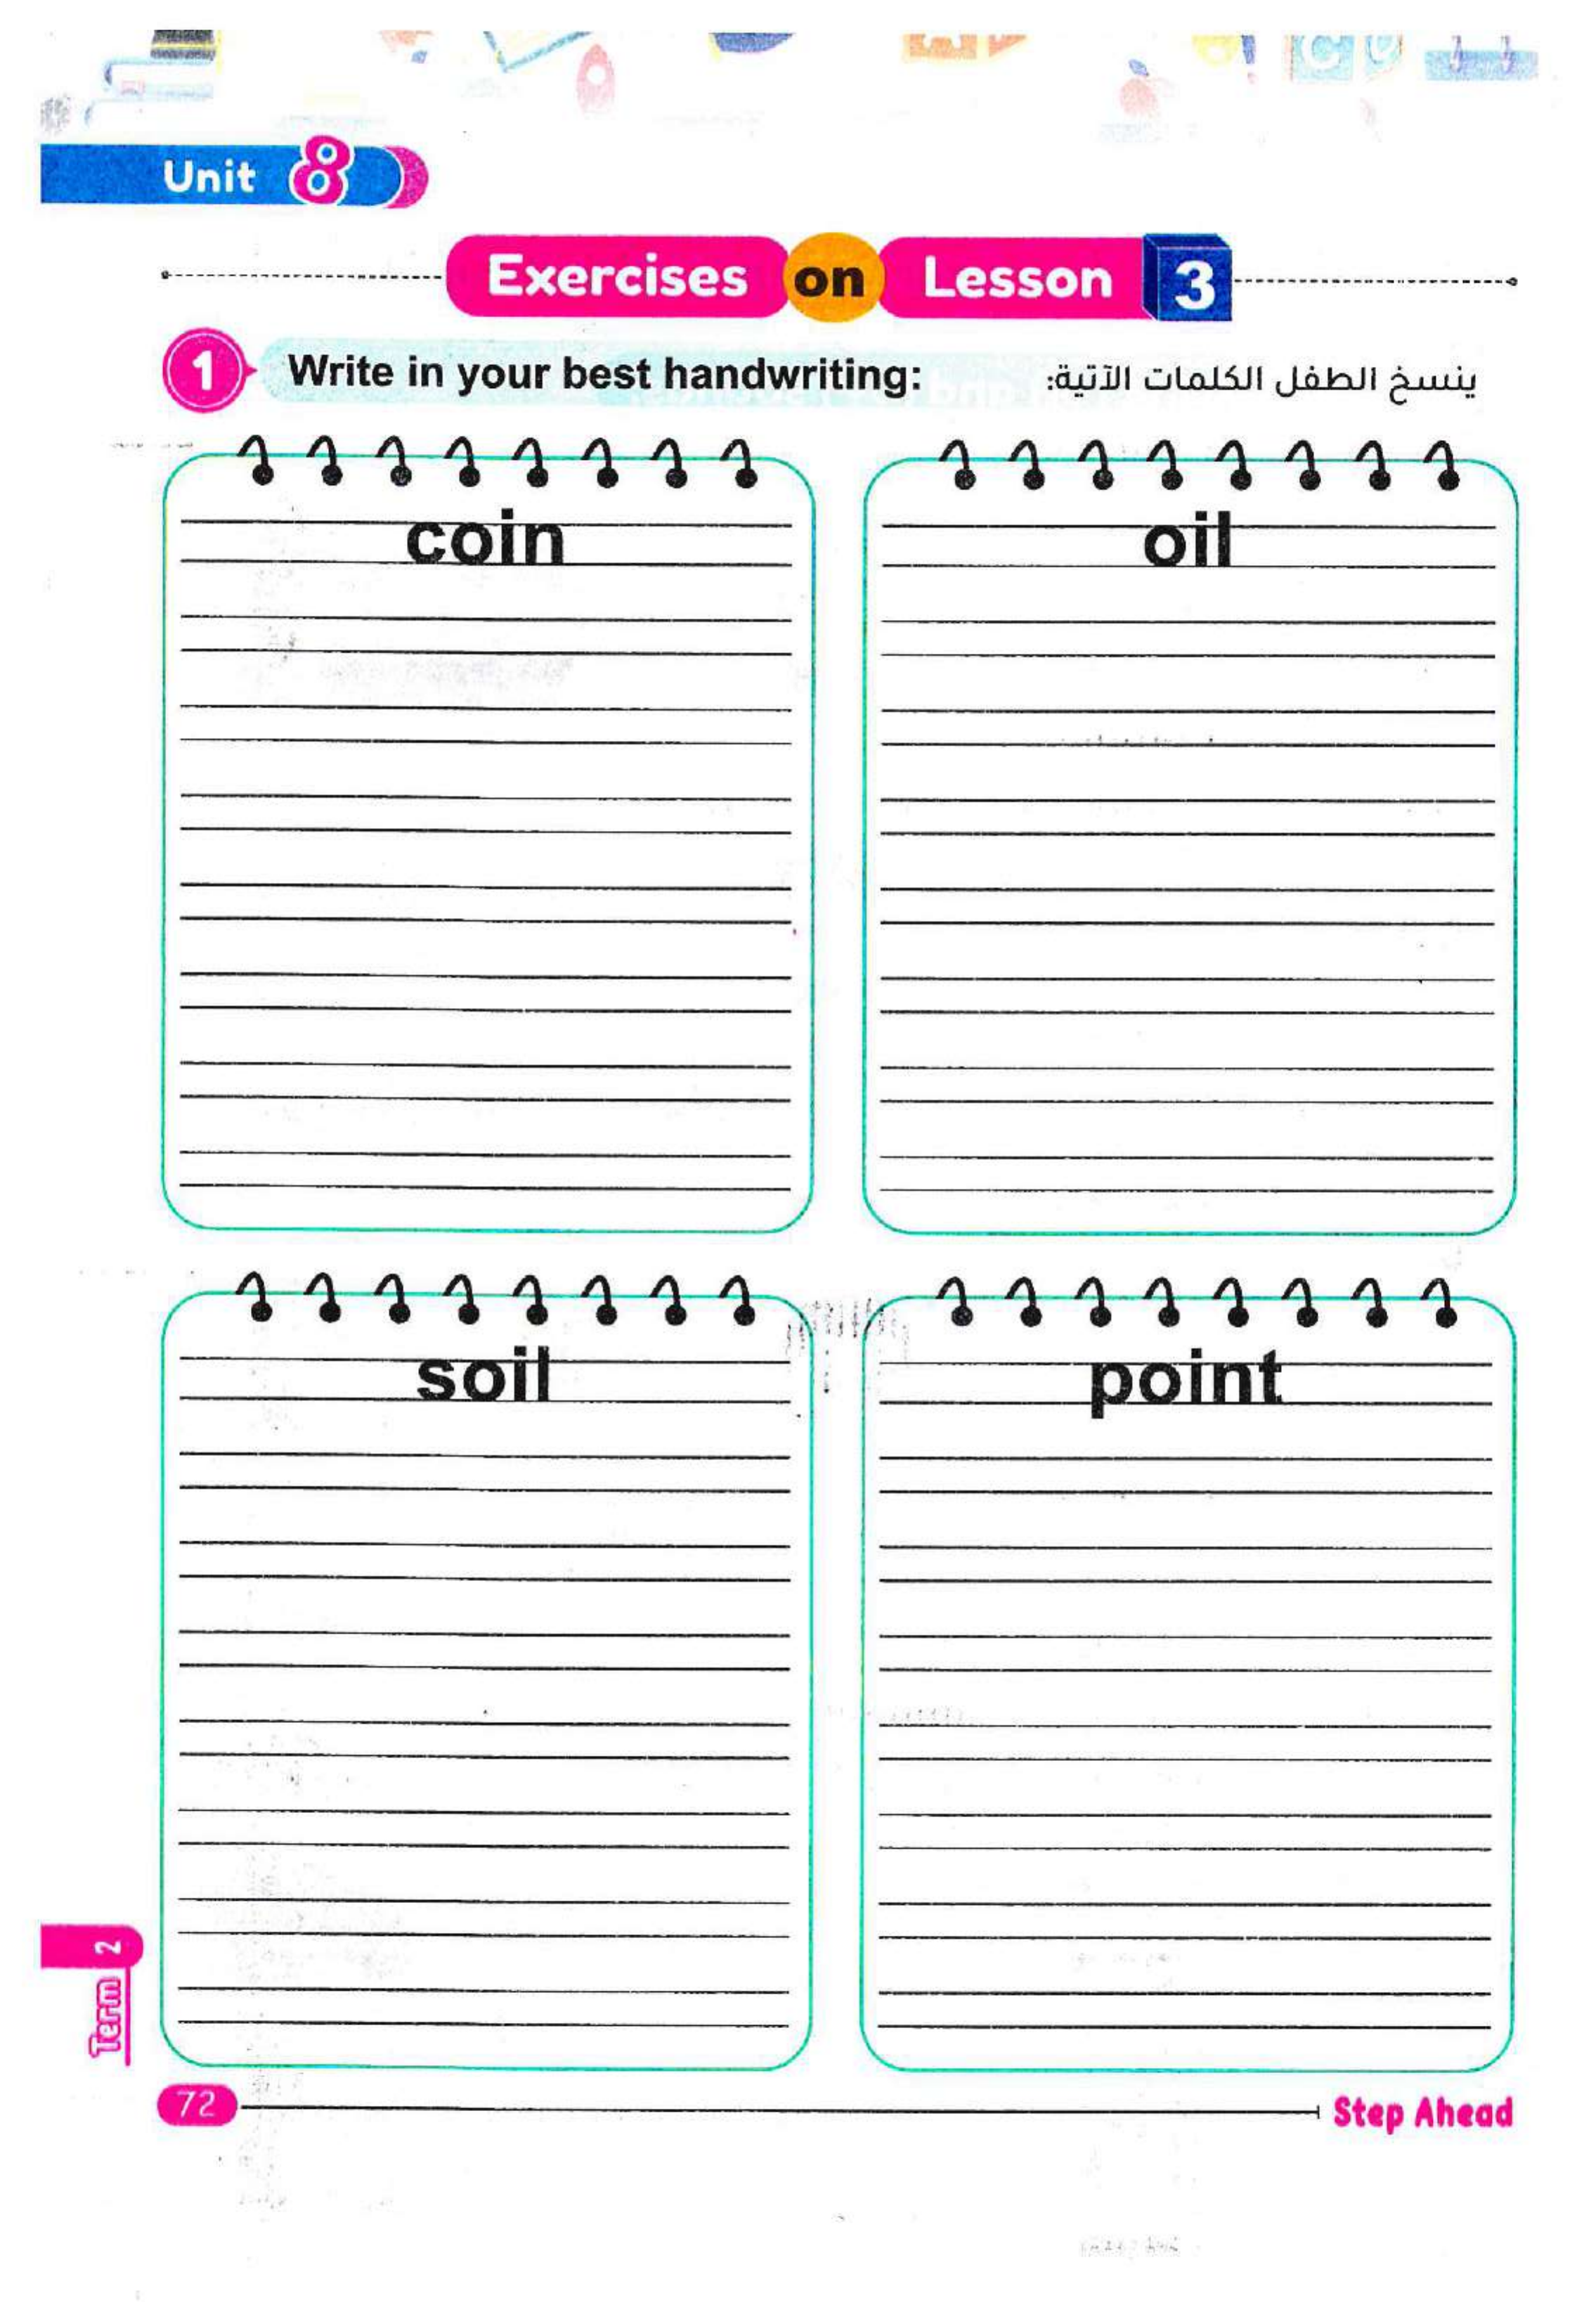 Unit 8
Exercises on Lesson 3
1 Write in your best handwriting: ينسخ الطفل الكلمات الآتية:
coin
oil
soil
point
Term 2
72
Step Ahead